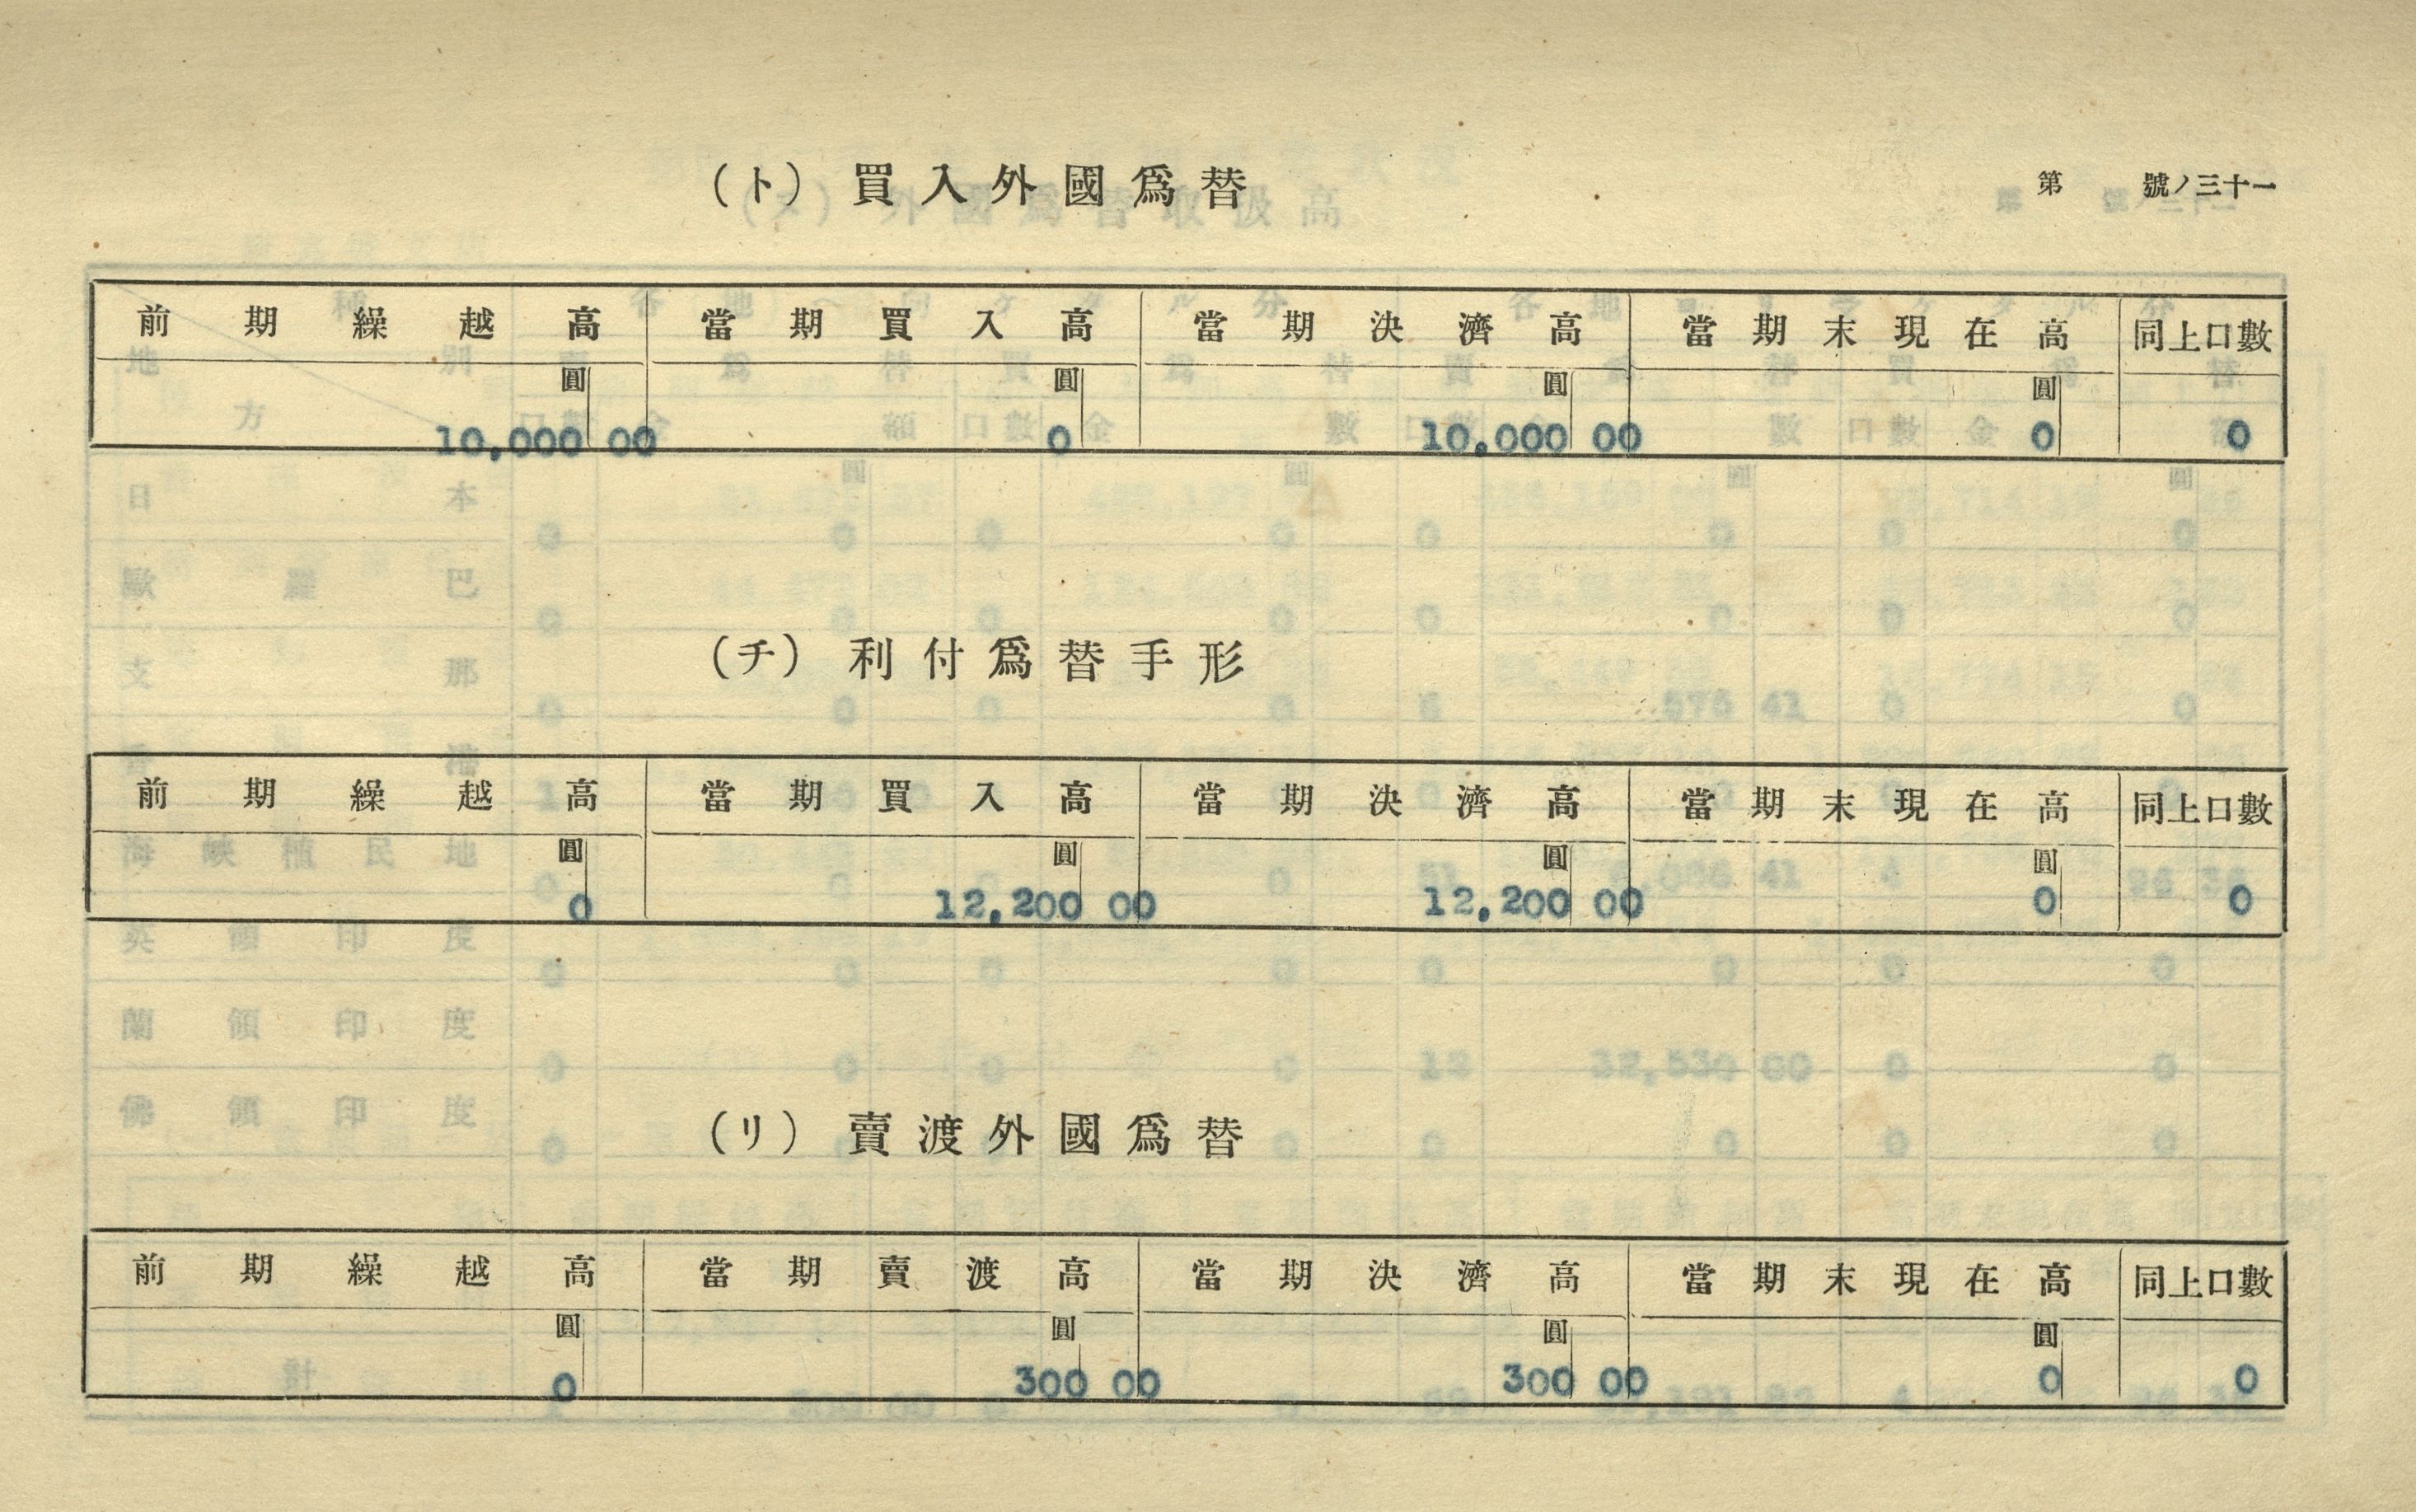 第 號ノ三十一
（ト）買入外國爲替
前期繰越高 當期買入高 當期決濟高 當期末現在高 同上口數
圓 圓 圓 圓
10,000 00 0 10,000 00 0 0
（チ）利付爲替手形
前期繰越高 當期買入高 當期決濟高 當期末現在高 同上口數
圓 圓 圓 圓
0 12,200 00 12,200 00 0 0
（リ）賣渡外國爲替
前期繰越高 當期賣渡高 當期決濟高 當期末現在高 同上口數
圓 圓 圓 圓
0 300 00 300 00 0 0